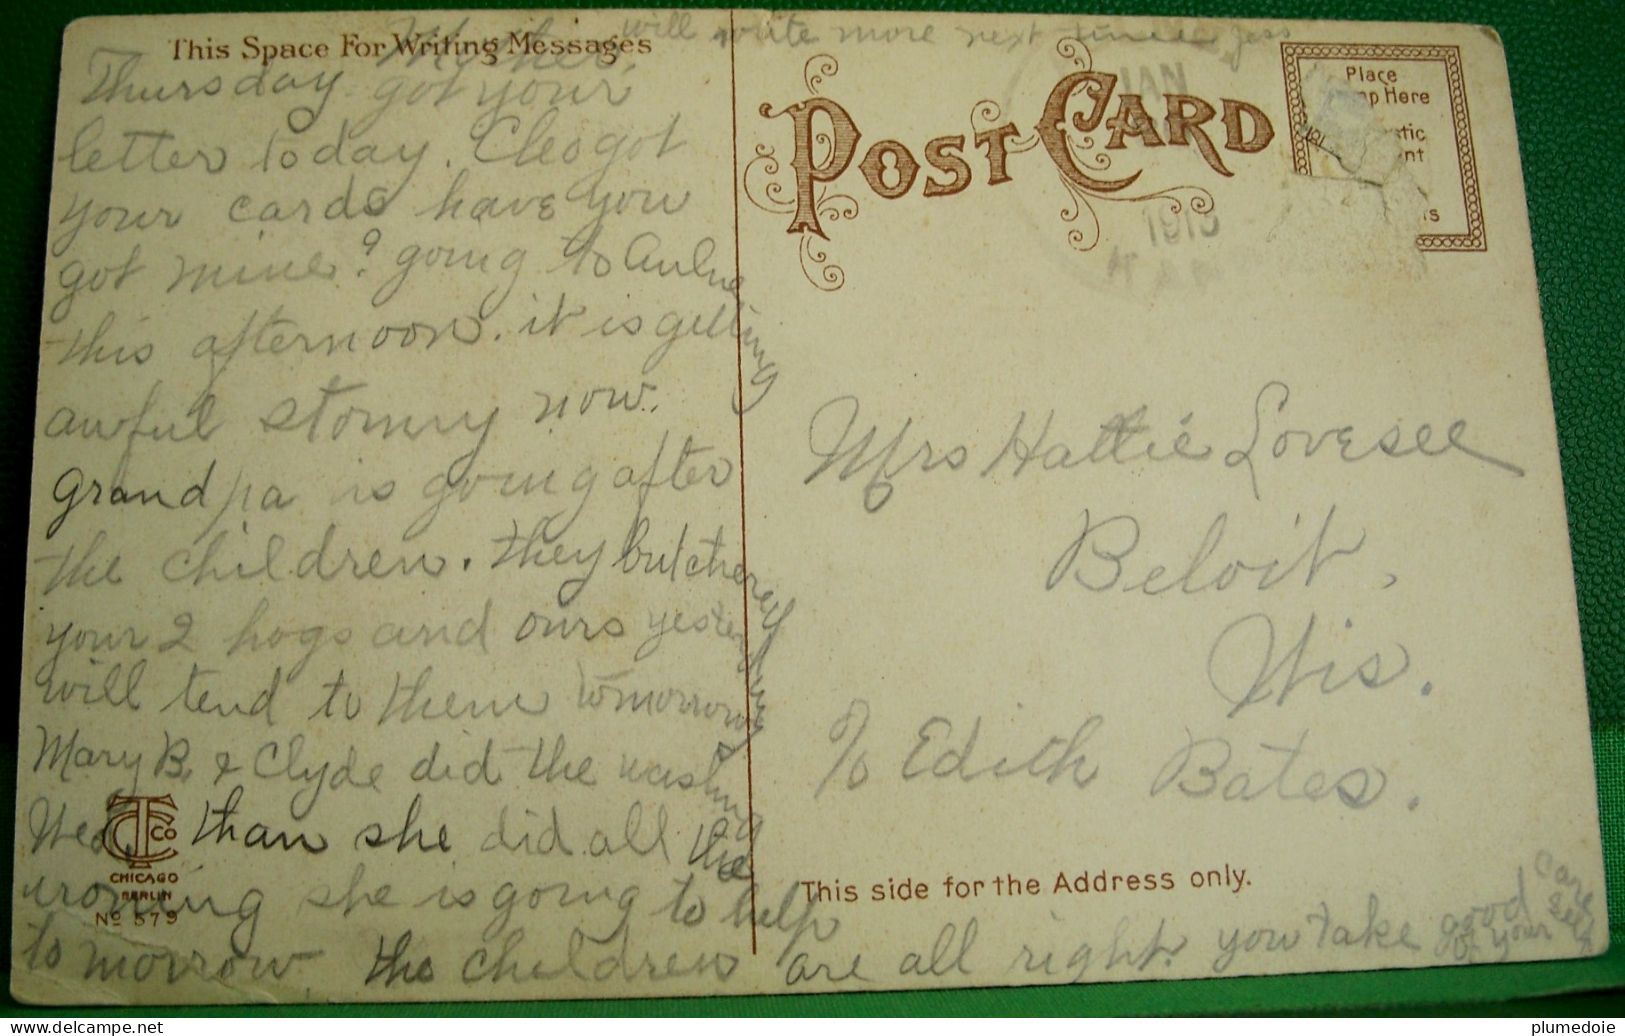 This Space For Writing Messages
will write more next time Jess
Mother,
Thursday got your
letter today. Cleo got
your cards have you
got mine? going to
this afternoon. it is getting
awful stormy now.
Grandpa is going after
the children. they butchered
your 2 hogs and ours yesterday
will tend to them tomorrow
Mary B. & Clyde did the washing
Wed. than she did all the
ironing she is going to help
to morrow the children are all right. you take good care
of your self
POST CARD
Place
mp Here
stic
nt
is
JAN
1913
Mrs Hattie Lovesee
Beloit,
Wis.
c/o Edith Bates.
This side for the Address only.
CTCo
CHICAGO
BERLIN
No 579
plumedoie